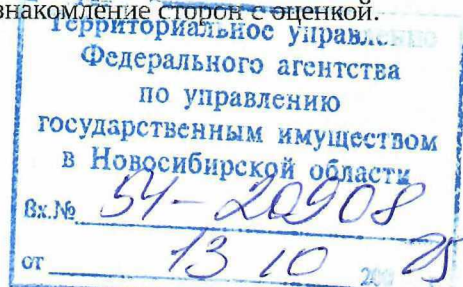 знакомление сторон с оценкой.
Территориальное управление
Федерального агентства
по управлению
государственным имуществом
в Новосибирской области
Вх.№ 54-20908
от 13 10 200 25